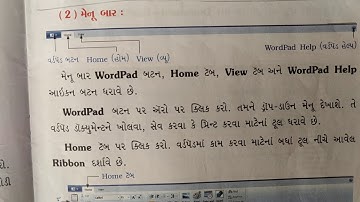 (2) મેનૂ બાર :
વર્ડપૅડ બટન Home (હોમ) View (વ્યૂ)
WordPad Help (વર્ડપૅડ હેલ્પ)
મેનૂ બાર WordPad બટન, Home ટૅબ, View ટૅબ અને WordPad Help
આઇકન બટન ધરાવે છે.
WordPad બટન પર ઍરો પર ક્લિક કરો. તમને ડ્રૉપ-ડાઉન મેનૂ દેખાશે. તે
વર્ડપૅડ ડૉક્યુમેન્ટને ખોલવા, સેવ કરવા કે પ્રિન્ટ કરવા માટેનાં ટૂલ ધરાવે છે.
Home ટૅબ પર ક્લિક કરો. વર્ડપૅડમાં કામ કરવા માટેનાં બધાં ટૂલ નીચે આવેલ
Ribbon દર્શાવે છે.
Home ટૅબ